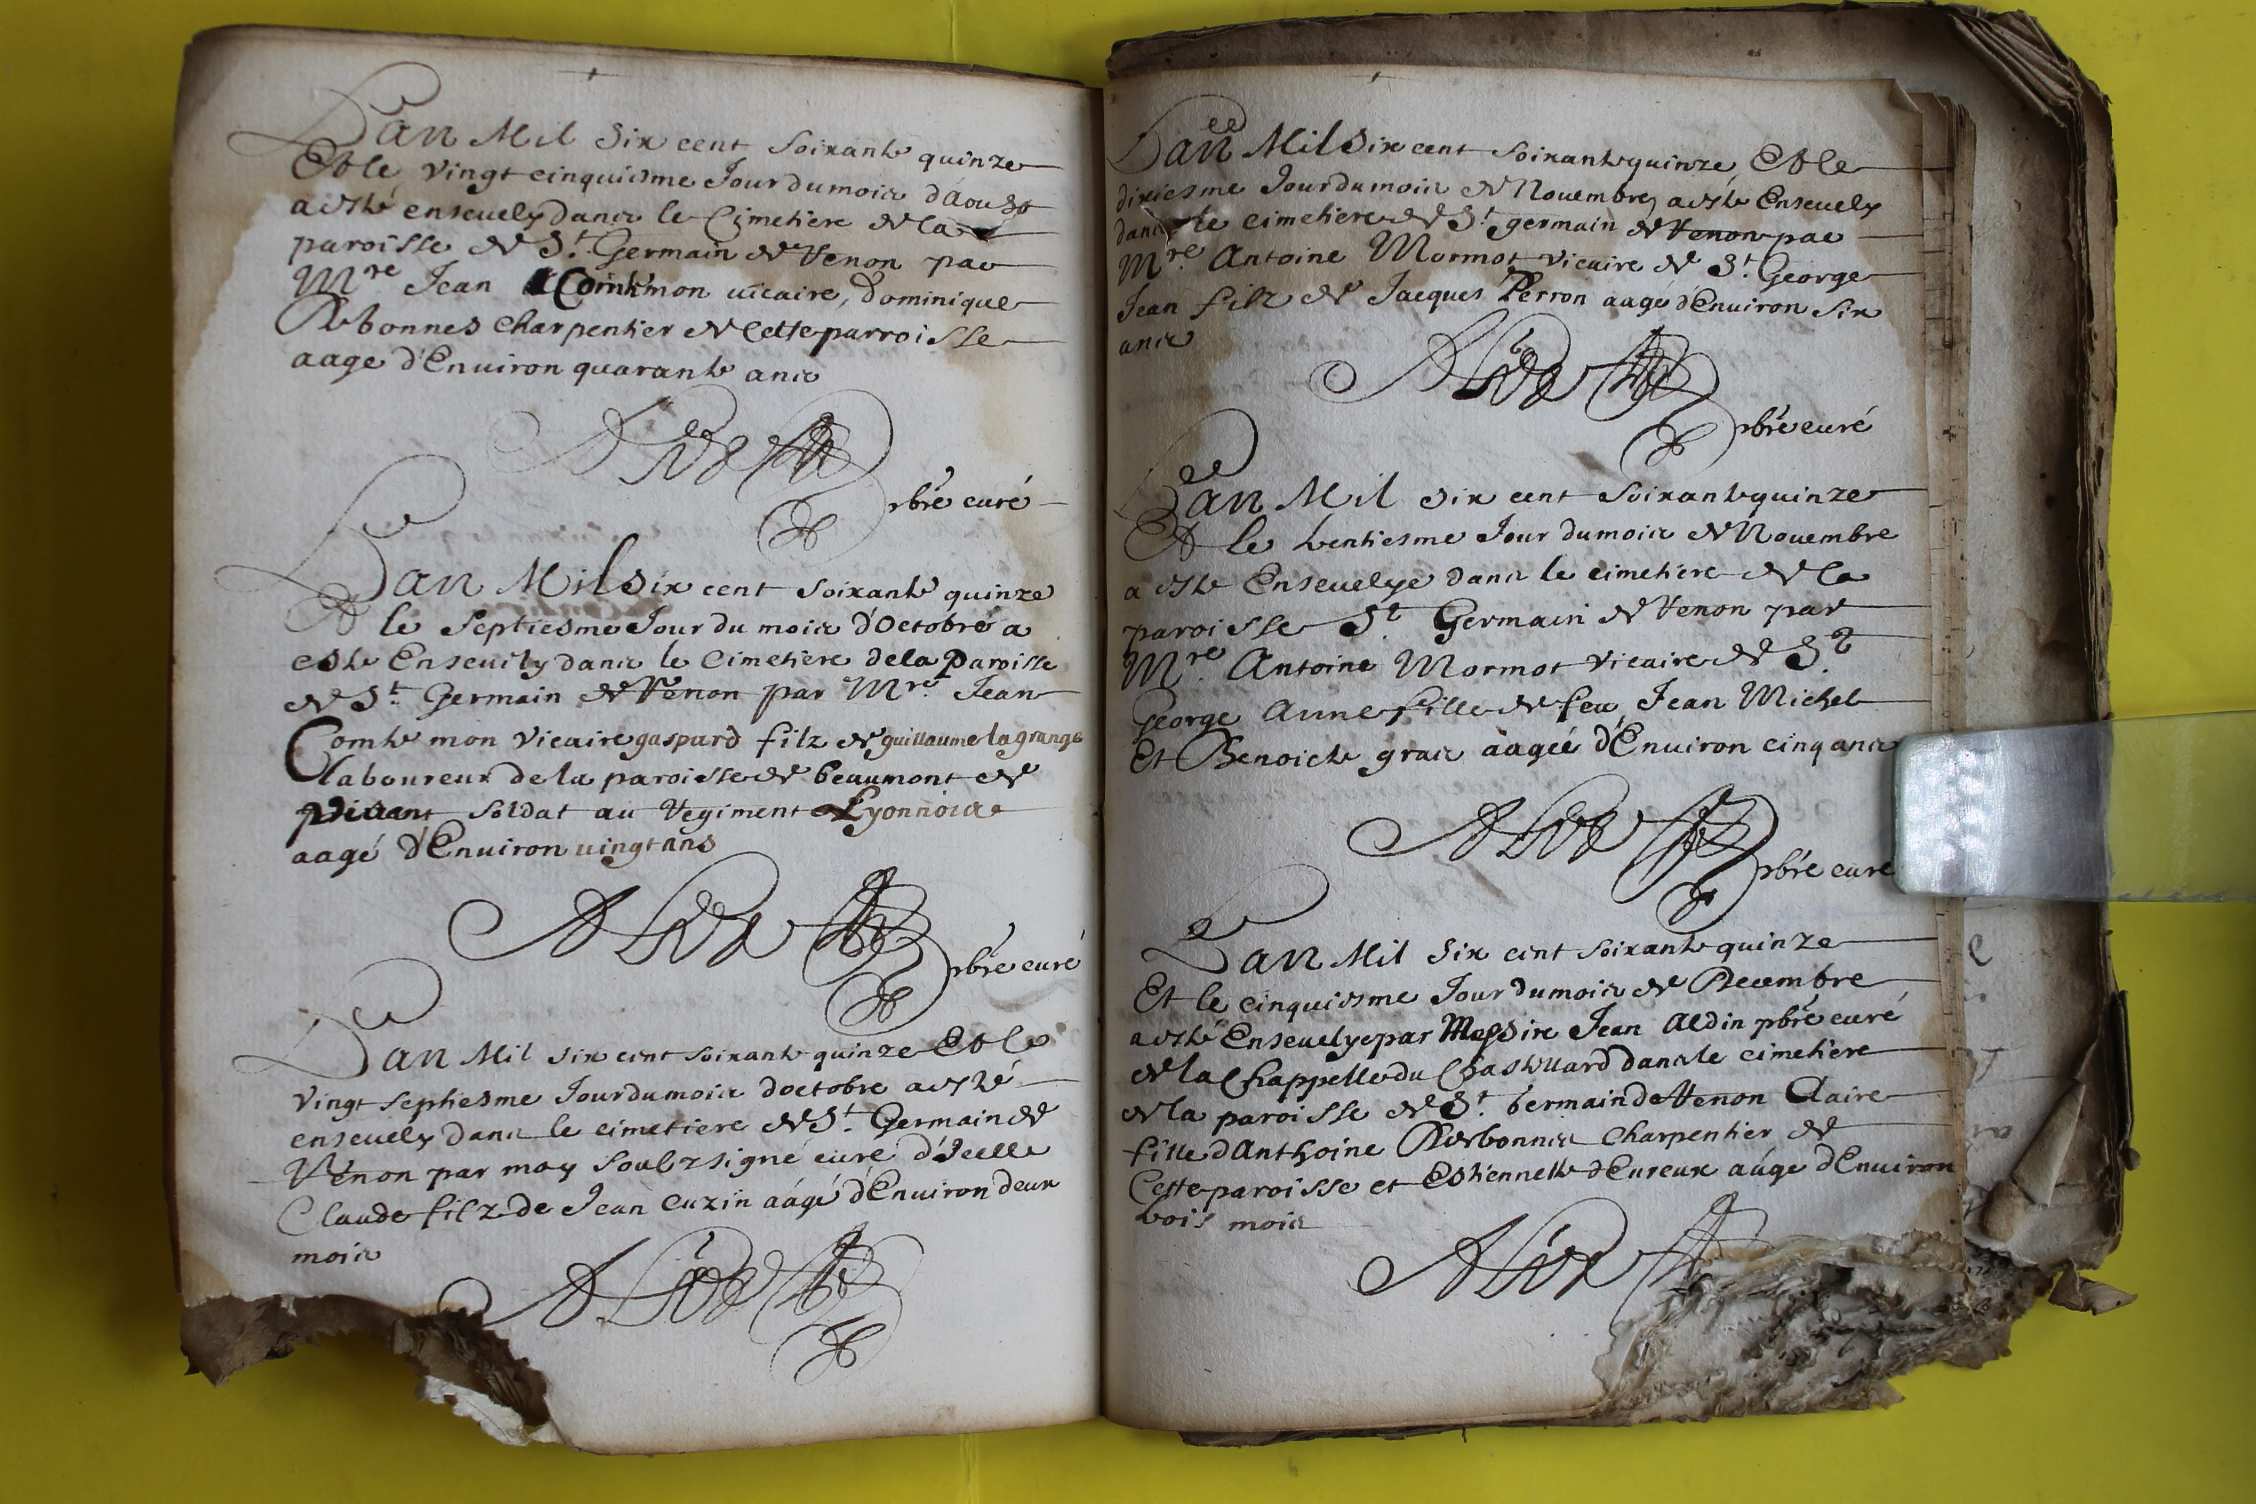 L'an Mil Six cent soixante quinze
Et le vingt cinquiesme Jour du mois d'Aoust
a esté ensevely dans le Cimetiere de la
paroisse de St. Germain de Venon par
Mre Jean Comte mon vicaire, Dominique
Rebonnes Charpentier de Cette parroisse
aage d'Environ quarante ans
pbre curé
L'an Mil Six cent soixante quinze
Et le Septiesme Jour du mois d'Octobre a
este Ensevily dans le Cimetiere de la Paroisse
de St. Germain de Venon par Mre. Jean
Comte mon Vicaire gaspard filz de guillaume lagrange
laboureur de la paroisse de beaumont de
vivant soldat au Regiment Lyonnois
aagé d'Environ vingt ans
pbre curé
L'an Mil Six cent soixante quinze Et le
Vingt septiesme Jour du mois doctobre a esté
ensevely dans le cimetiere de St. Germain de
Venon par moy soubzsigné curé d'Icelle
Claude filz de Jean Cuzin aagé d'Environ deux
mois
L'an Mil Six cent soixante quinze, Et le
dixiesme Jour du mois de Novembre, a esté Ensevely
dans le cimetiere de St. germain de Venon par
Mre. Antoine Mormot Vicaire de St. George
Jean filz de Jacques Perron aagé d'Environ Six
ans
pbre curé
L'an Mil Six cent Soixante quinze
Et le trentiesme Jour du mois de Novembre
a este Ensevelye dans le cimetiere de la
paroisse St. Germain de Venon par
Mre. Antoine Mormot Vicaire de St.
George Anne fille de feu Jean Michel
Et Benoicte gras aagée d'Environ cinq ans
pbre curé
L'an Mil Six cent soixante quinze
Et le cinquiesme Jour du mois de Decembre
a esté Ensevelye par Messire Jean Aldin pbre curé
de la Chappelle du Chastellard dans le cimetiere
de la paroisse de St. Germain de Venon Claire
fille d'Anthoine Rebonnes Charpentier de
Cette paroisse et Estiennette d'Eureux aage d'Environ
trois mois